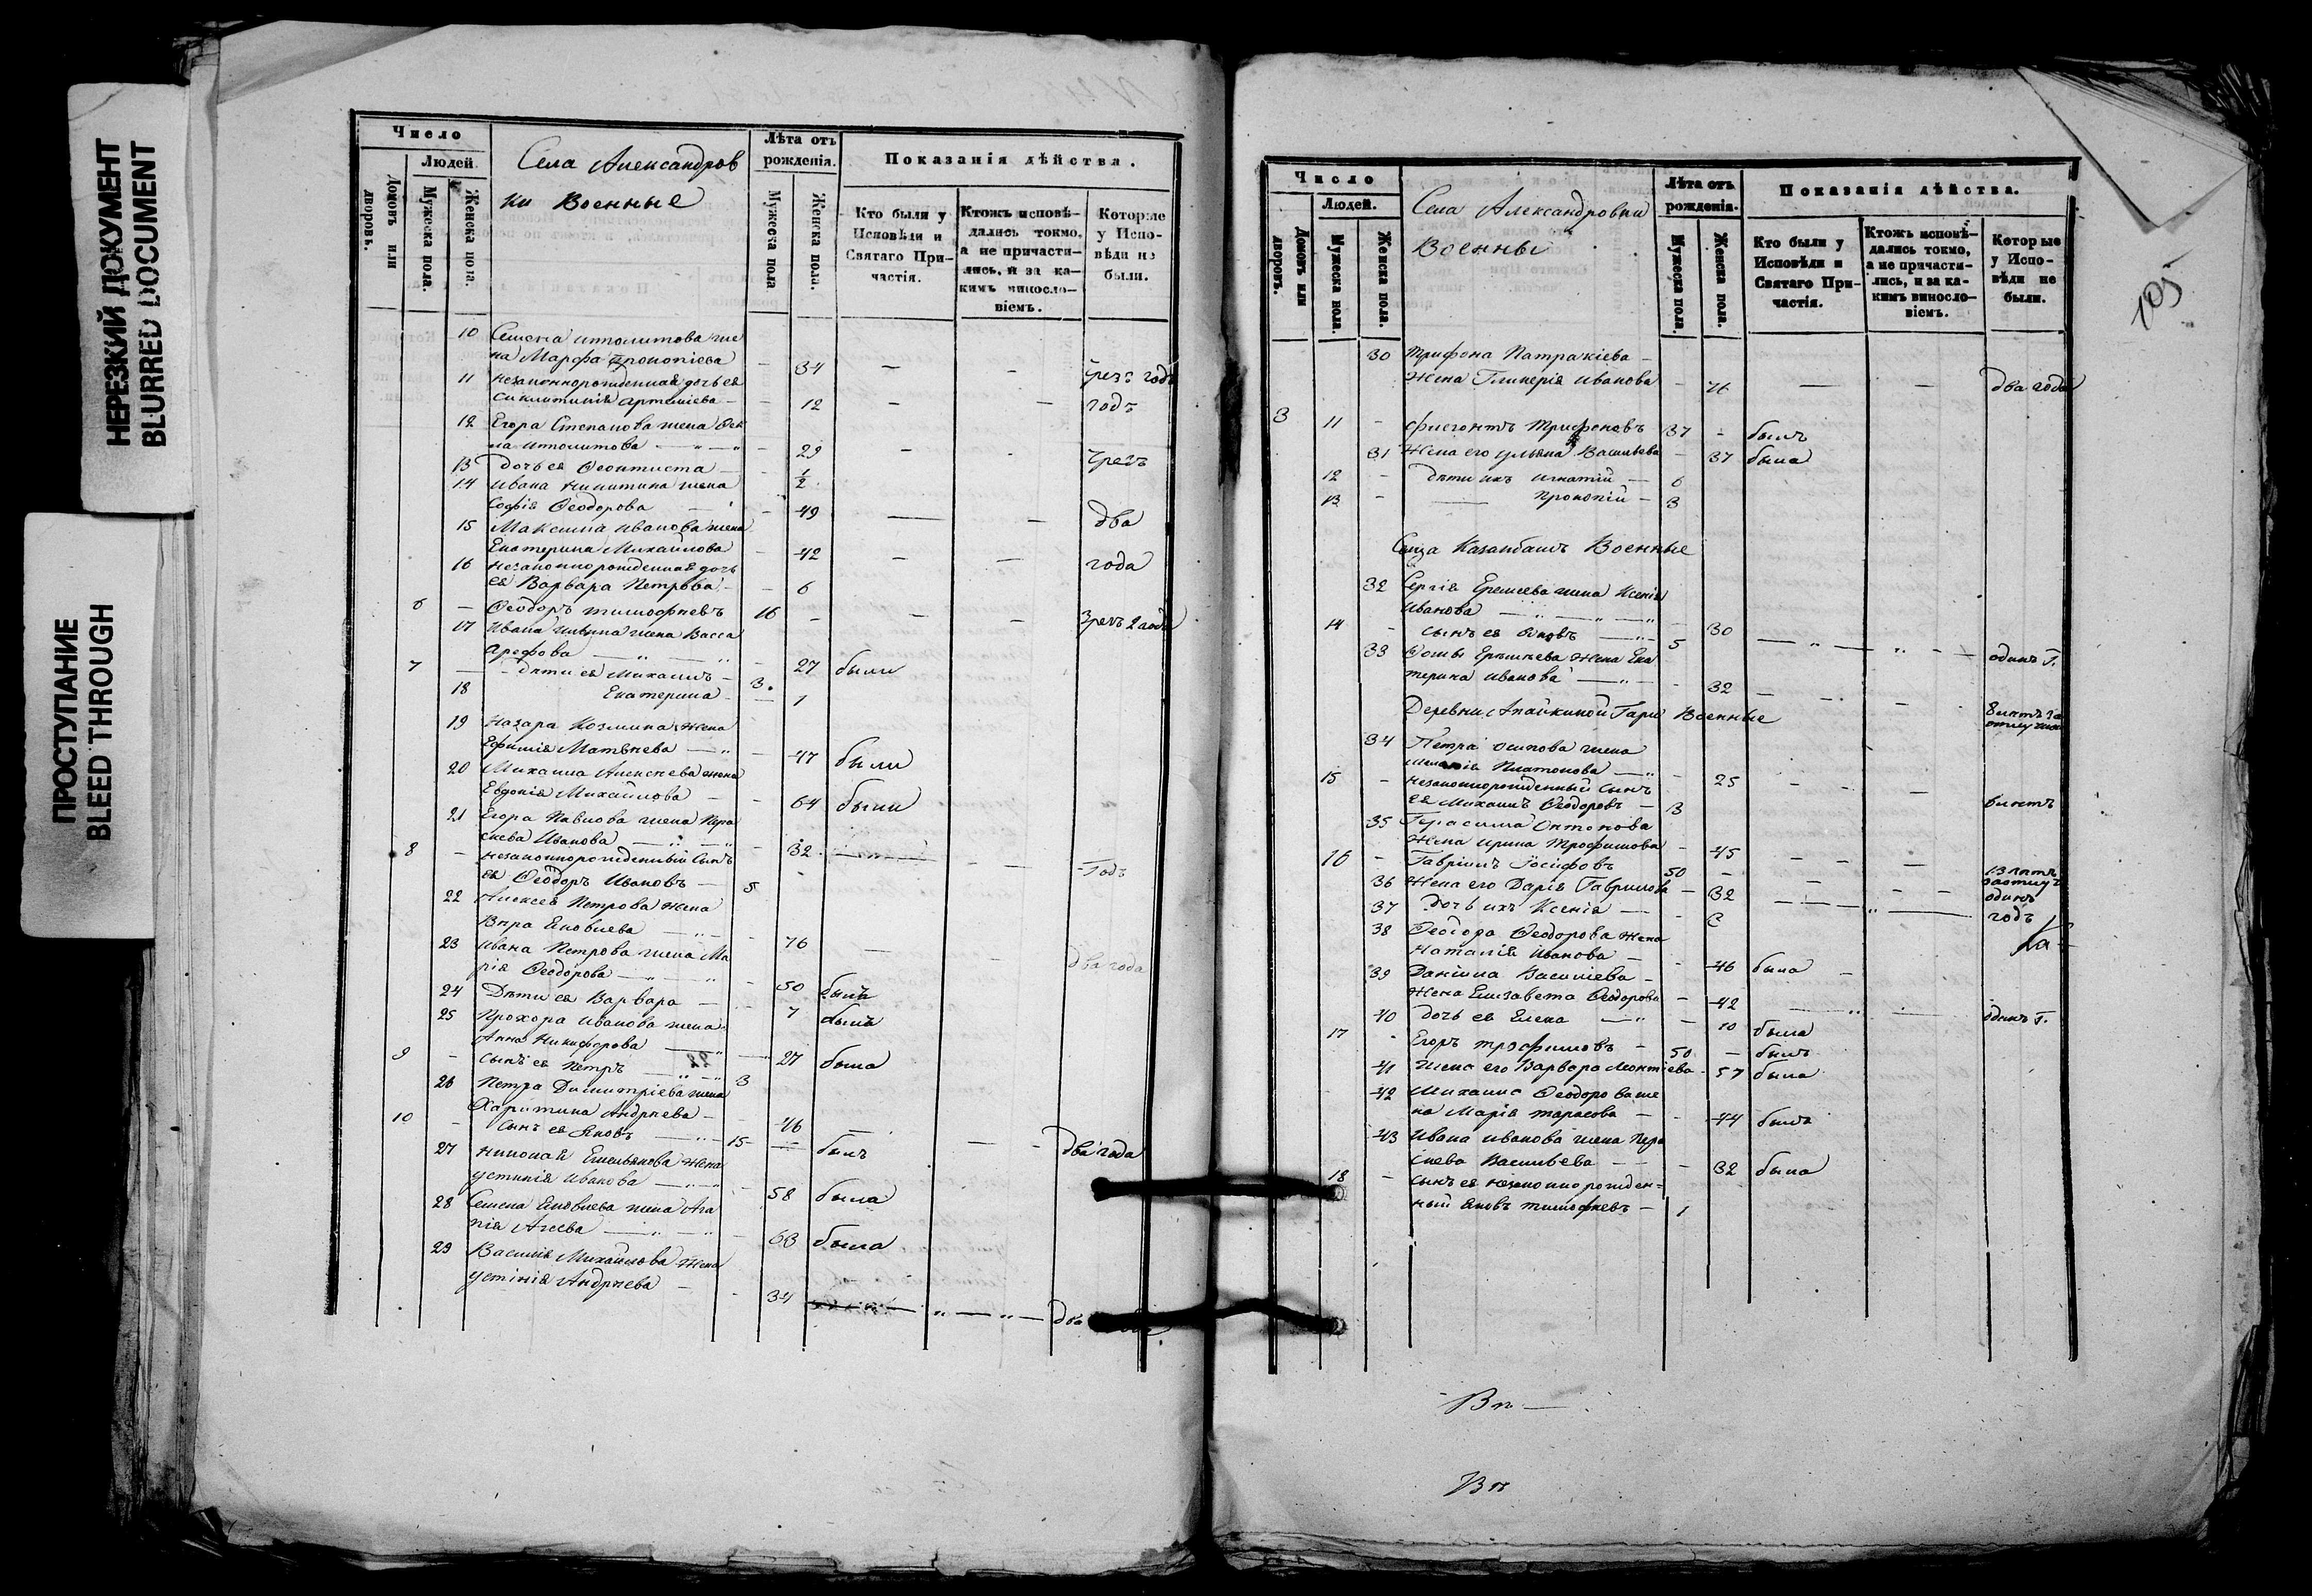 НЕРЕЗКИЙ ДОКУМЕНТ
BLURRED DOCUMENT
ПРОСТУПАНИЕ
BLEED THROUGH
Число
Людей.
Домовъ или дворовъ.
Мужеска пола.
Женска пола.
Села Александров
ки Военные
Лѣта отъ рожденія.
Мужеска пола
Женска пола.
Показанія дѣйства.
Кто были у Исповѣди и Святаго Причастія.
Ктожъ исповѣдались токмо, а не причастились, и за какимъ винословіемъ.
Которые у Исповѣди не были.
10 Семена Ипполитова же
на Марфа Прокопіева — 34 — — чрезъ годъ
11 незаконнорожденная дочь ея
Артеміева — 12 — — годъ
12 Егора Степанова жена
Ипполитова — 29 — —
13 дочь ея Феоктиста — ½
14 Ивана Никитина жена
Софія Феодорова — 49 — — два
15 Максима Иванова жена
Екатерина Михайлова — 42 — — года
16 незаконнорожденная дочь
ея Варвара Петрова — 6
6 — Феодоръ Тимофѣевъ 16 — — — 2 года
17 Ивана Ильина жена Васса
Арефова — 27 были
7 — дѣти ея Михаилъ — 3
18 Екатерина — 1
19 Назара Козмина жена
Ефимія Матвѣева — 47 были
20 Михаила Алексѣева жена
Евдокія Михайлова — 64 были
21 Егора Павлова жена Пара
скева Иванова — 32 — — годъ
8 — незаконнорожденный сынъ
ея Феодоръ Ивановъ — 5
22 Алексея Петрова жена
Вѣра Яковлева — 76 — — два года
23 Ивана Петрова жена Ма
рія Феодорова — 50 была
24 Дѣти ея Варвара — 7 была
25 Прохора Иванова жена
Анна Никифорова — 27 была
9 — сынъ ея Петръ — 3
26 Петра Димитріева жена
Харитина Андрѣева — 46 —
10 — сынъ ея Яковъ — 15 — былъ — — два года
27 Николая Емельянова жена
Устинія Иванова — 58 была
28 Семена Яковлева жена Ага
пія Агеева — 63 была
29 Василія Михайлова жена
Устинія Андрѣева — 34 — — два
Число
Людей.
Домовъ или дворовъ.
Мужеска пола.
Женска пола.
Села Александровки
Военны
Лѣта отъ рожденія.
Мужеска пола.
Женска пола.
Показанія дѣйства.
Кто были у Исповѣди и Святаго Причастія.
Ктожъ исповѣдались токмо, а не причастились, и за какимъ винословіемъ.
Которые у Исповѣди не были.
105
30 Трифона Патракіева —
жена Гликерія Иванова — 76 — — два года
3 11 — Флегонтъ Трифоновъ 37 — былъ
31 Жена его Ульяна Васильева — 37 была
12 — дѣти ихъ Игнатій — 6
13 — Прокопій — 3
Военные
32 Сергія жена Ксенія
Иванова — 30
14 — сынъ ея Яковъ — 5 — — одинъ г.
33 Фомы жена Ека
терина Иванова — 32 — —
Деревни Гари Военные
34 Петра Осипова жена
Платонова — 25 — —
15 — незаконнорожденный сынъ
ея Михаилъ Феодоровъ — 3
35 Герасима Антонова
жена Ирина Трофимова — 45 — —
16 — Гавріилъ Іосифовъ 50 —
36 Жена его Дарія Гаврилова — 32 — — одинъ
37 Дочь ихъ Ксенія — годъ
38 Феодора Феодорова жена
Наталія Иванова — 46 была —
39 Даніила Василіева —
жена Елизавета Феодорова — 42 — — одинъ г.
40 дочь ея Елена — 10 была
17 — Егоръ Трофимовъ — 50 — былъ
41 Жена его Варвара Леонтіева — 57 была
42 Михаила Феодорова же
на Марія Тарасова — 44 была
43 Ивана Иванова жена Пара
скева Васильева — 32 была
18 — сынъ ея незаконнорожден-
ный Яковъ Тимофѣевъ — 1